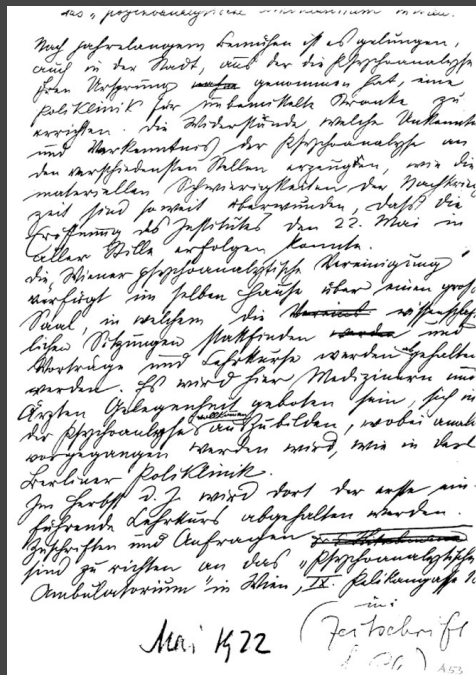 das "psychoanalytische Ambulatorium in Wien.
Nach jahrelangem Bemühen ist es gelungen,
auch in der Stadt, aus der die Psychoanalyse
ihren Ursprung genommen hat, eine
Poliklinik für unbemittelte Kranke zu
errichten. Die Widerstände welche Unkenntnis
und Verkenntnis der Psychoanalyse an
den verschiedensten Stellen erzeugten, wie die
materiellen Schwierigkeiten der Nachkriegs
zeit sind soweit überwunden, daß die
Eröffnung des Institutes den 22. Mai in
aller Stille erfolgen konnte.
die "Wiener psychoanalytische Vereinigung"
verfügt im selben Hause über einen groß
Saal, in welchem die wissenschaft
lichen Sitzungen stattfinden und
Vorträge und Lehrkurse werden gehalten
werden. Es wird hier Medizinern und
Ärzten Gelegenheit geboten sein, sich in
der Psychoanalyse auszubilden, wobei analog
vorgegangen werden wird, wie in der
Berliner Poliklinik.
Im Herbst d. J. wird dort der erste ein
führende Lehrkurs abgehalten werden.
Zuschriften und Anfragen
sind zu richten an das "Psychoanalytische
Ambulatorium" in Wien, IX. Pelikangasse
Mai 1922
(in:
Zeitschrift
A53